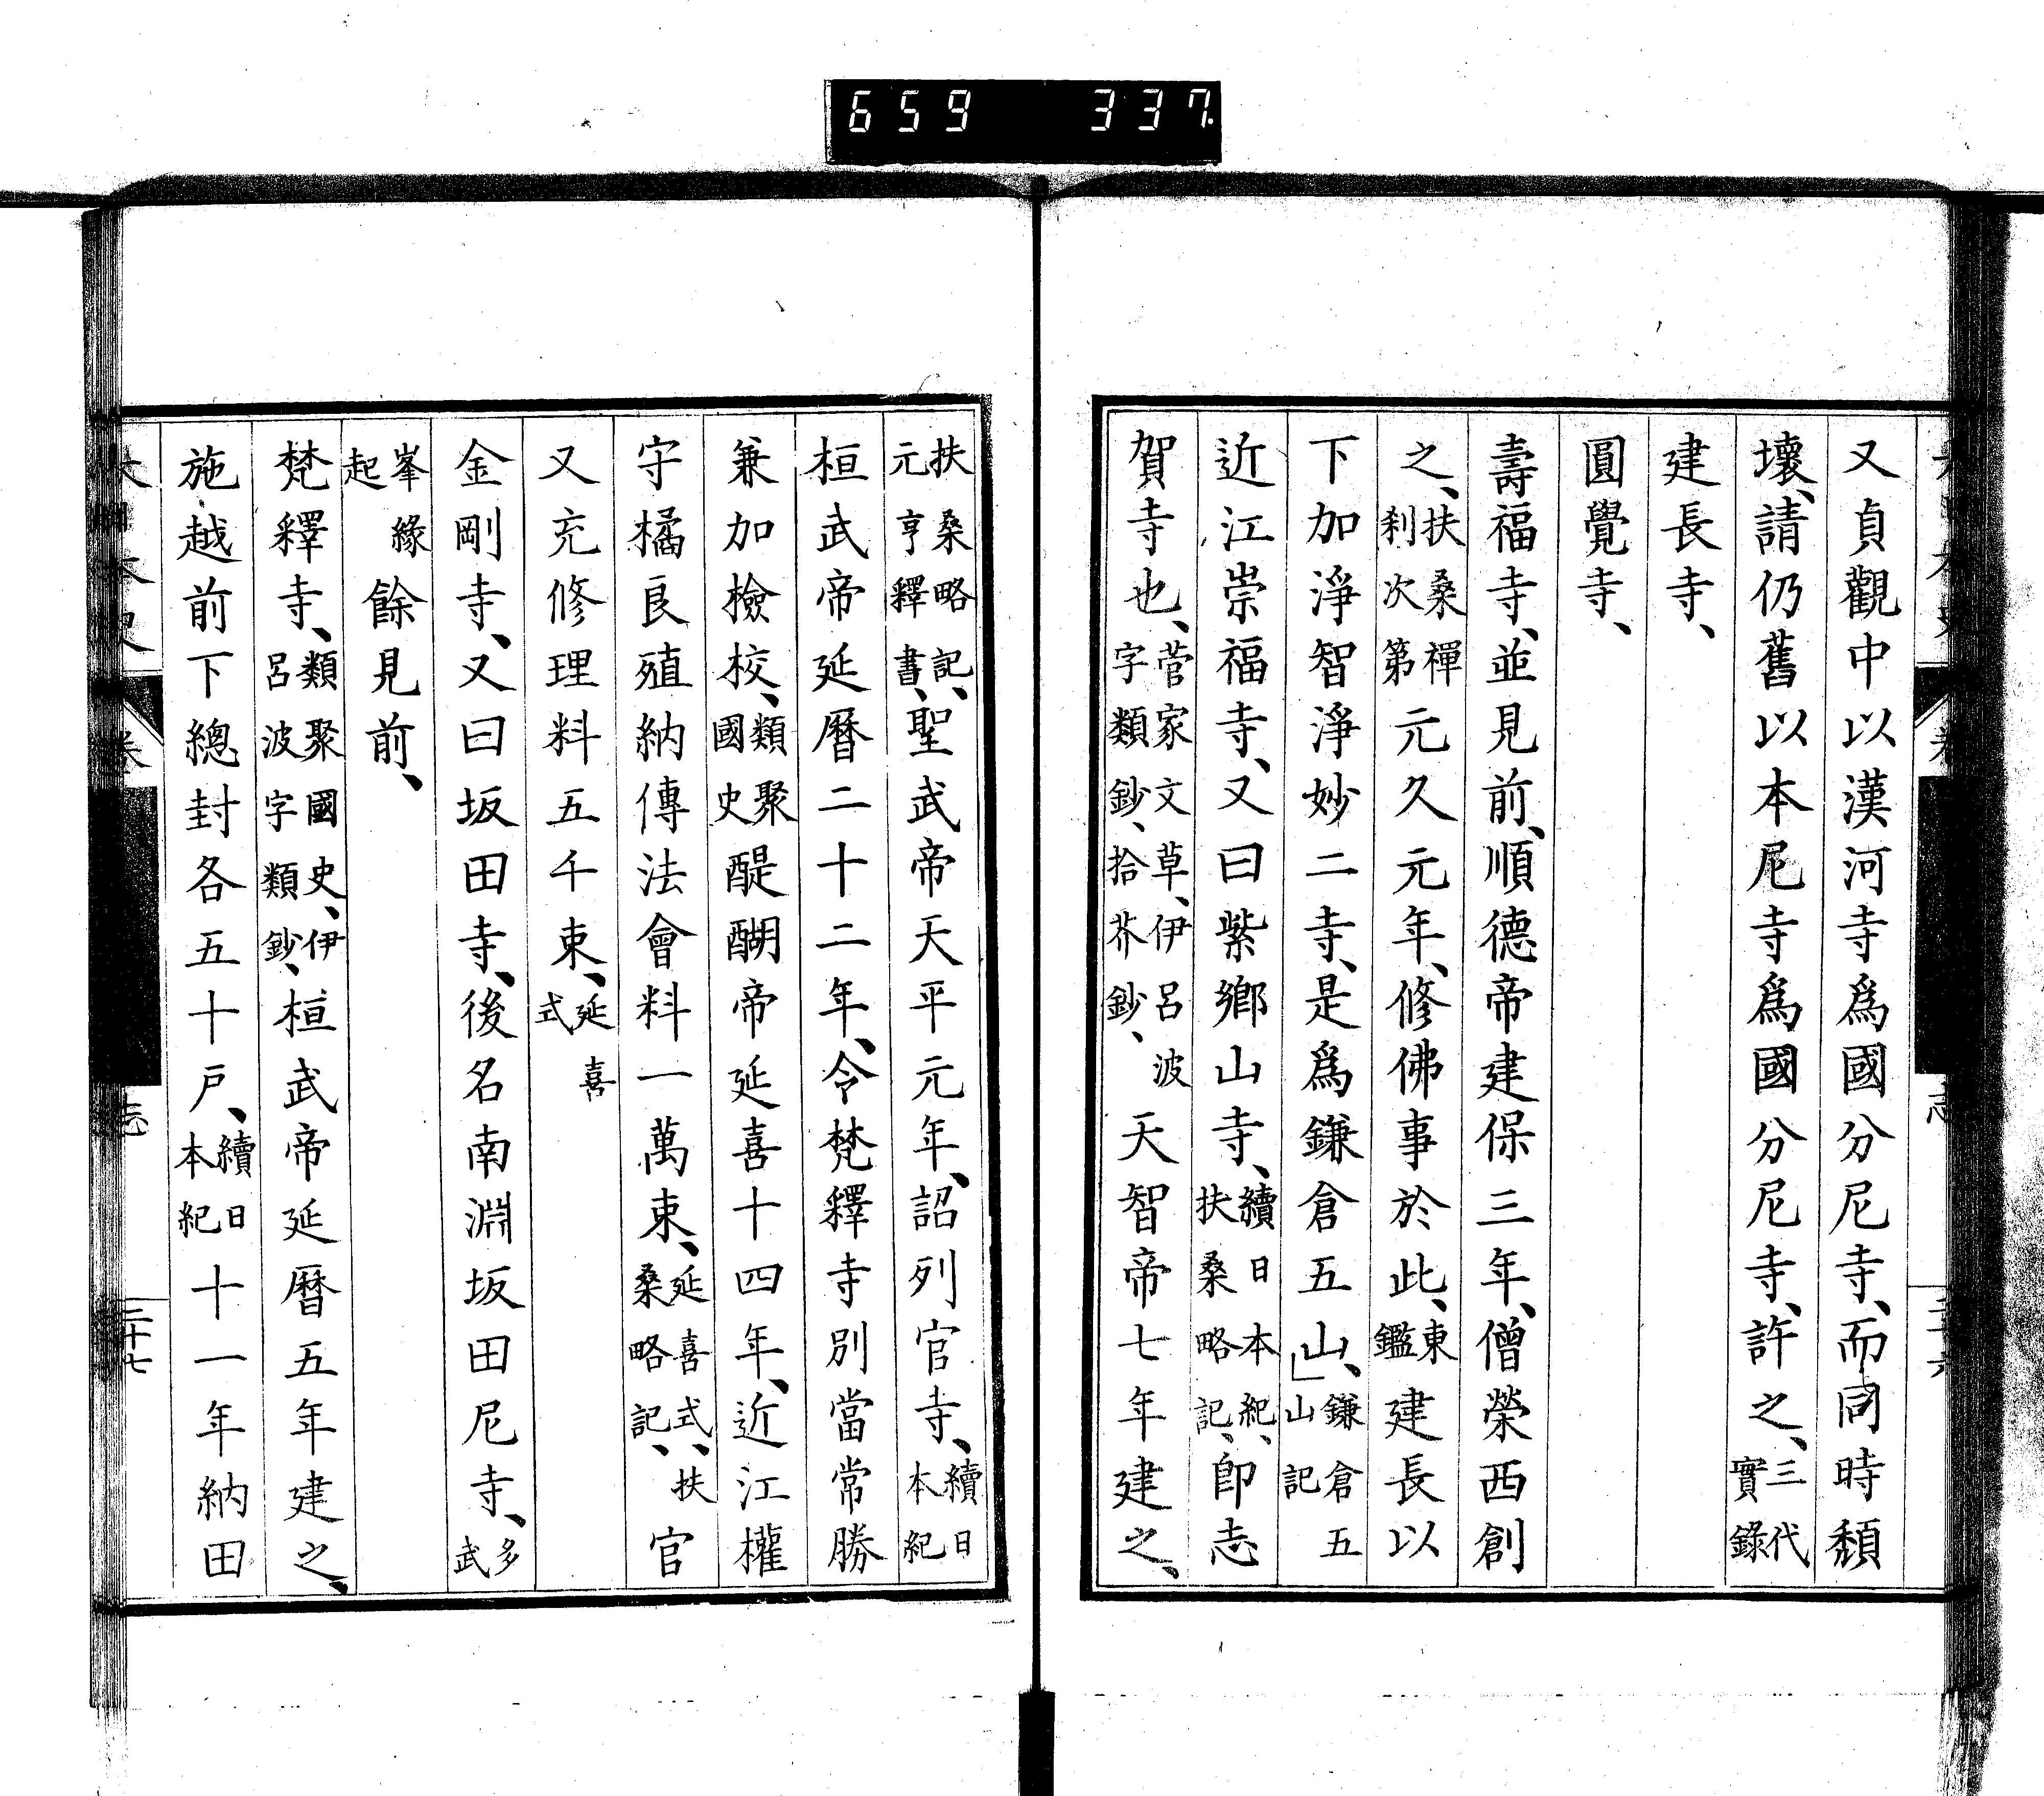 659 337.
又貞觀中以漢河寺爲國分尼寺、而同時頽
壞、請仍舊以本尼寺爲國分尼寺、許之、三代實錄
建長寺、
圓覺寺、
壽福寺、並見前、順德帝建保三年、僧榮西創
之、扶桑禪刹次第元久元年、修佛事於此、東鑑建長以
下加淨智淨妙二寺、是爲鎌倉五山、鎌倉五山記
近江崇福寺、又曰紫鄉山寺、續日本紀、扶桑略記、卽志
賀寺也、菅家文草、伊呂波字類鈔、拾芥鈔、天智帝七年建之、
扶桑略記、元亨釋書、聖武帝天平元年、詔列官寺、續日本紀
桓武帝延曆二十二年、令梵釋寺別當常勝
兼加檢校、類聚國史醍醐帝延喜十四年、近江權
守橘良殖納傳法會料一萬束、延喜式、扶桑略記、官
又充修理料五千束、延喜式
金剛寺、又曰坂田寺、後名南淵坂田尼寺、多武
峯緣起餘見前、
梵釋寺、類聚國史、伊呂波字類鈔、桓武帝延曆五年建之、
施越前下總封各五十戶、續日本紀十一年納田
卷
志
二十七